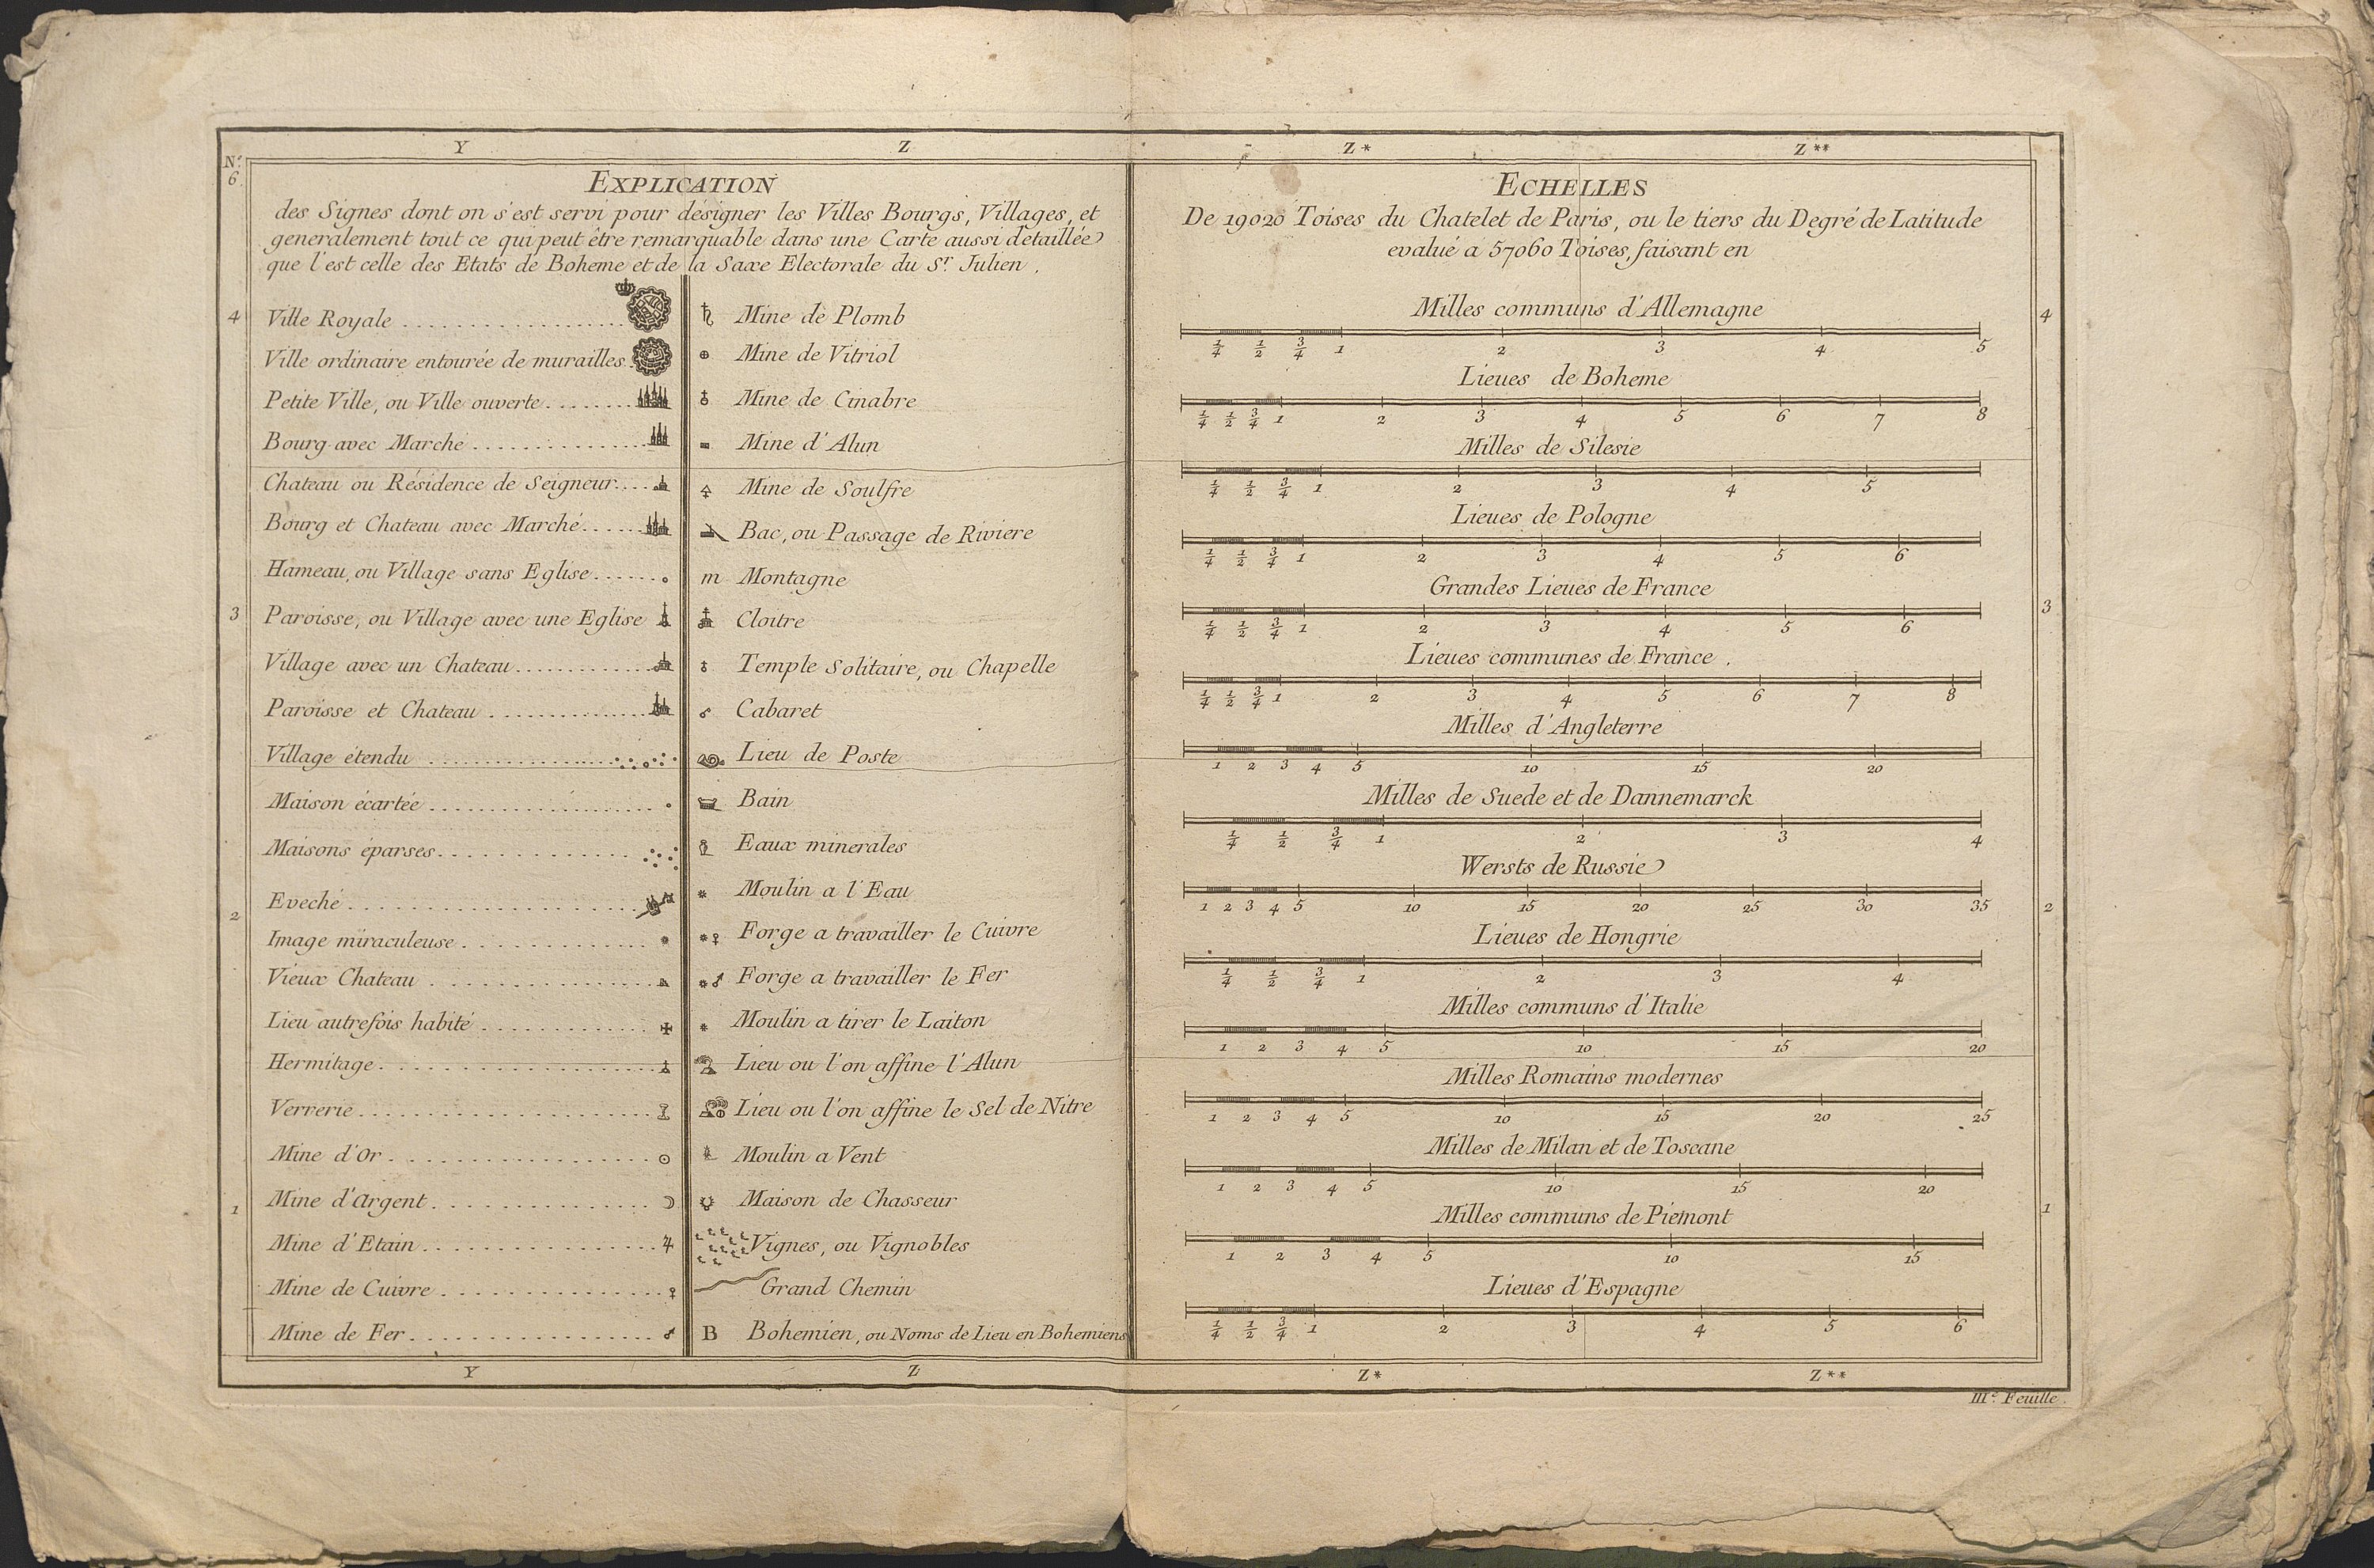 Y Z Z* Z**
No. 6.
EXPLICATION
des Signes dont on s'est servi pour désigner les Villes Bourgs, Villages, et
generalement tout ce qui peut être remarquable dans une Carte aussi detaillée
que l'est celle des Etats de Boheme et de la Saxe Electorale du Sr. Julien.
4
Ville Royale
Ville ordinaire entourée de murailles
Petite Ville, ou Ville ouverte
Bourg avec Marché
Chateau ou Résidence de Seigneur
Bourg et Chateau avec Marché
Hameau, ou Village sans Eglise
3
Paroisse, ou Village avec une Eglise
Village avec un Chateau
Paroisse et Chateau
Village étendu
Maison écartée
Maisons éparses
Eveché
2
Image miraculeuse
Vieux Chateau
Lieu autrefois habité
Hermitage
Verrerie
Mine d'Or
Mine d'Argent
1
Mine d'Etain
Mine de Cuivre
Mine de Fer
Mine de Plomb
Mine de Vitriol
Mine de Cinabre
Mine d'Alun
Mine de Soulfre
Bac, ou Passage de Riviere
m Montagne
Cloitre
Temple Solitaire, ou Chapelle
Cabaret
Lieu de Poste
Bain
Eaux minerales
Moulin a l'Eau
Forge a travailler le Cuivre
Forge a travailler le Fer
Moulin a tirer le Laiton
Lieu ou l'on affine l'Alun
Lieu ou l'on affine le Sel de Nitre
Moulin a Vent
Maison de Chasseur
Vignes, ou Vignobles
Grand Chemin
B Bohemien, ou Noms de Lieu en Bohemiens
ECHELLES
De 19020 Toises du Chatelet de Paris, ou le tiers du Degré de Latitude
evalué a 57060 Toises, faisant en
Milles communs d'Allemagne
4
1/4 1/2 3/4 1 2 3 4 5
Lieues de Boheme
1/4 1/2 3/4 1 2 3 4 5 6 7 8
Milles de Silesie
1/4 1/2 3/4 1 2 3 4 5
Lieues de Pologne
1/4 1/2 3/4 1 2 3 4 5 6
Grandes Lieues de France
3
1/4 1/2 3/4 1 2 3 4 5 6
Lieues communes de France.
1/4 1/2 3/4 1 2 3 4 5 6 7 8
Milles d'Angleterre
1 2 3 4 5 10 15 20
Milles de Suede et de Dannemarck
1/4 1/2 3/4 1 2 3 4
Wersts de Russie
1 2 3 4 5 10 15 20 25 30 35
2
Lieues de Hongrie
1/4 1/2 3/4 1 2 3 4
Milles communs d'Italie
1 2 3 4 5 10 15 20
Milles Romains modernes
1 2 3 4 5 10 15 20 25
Milles de Milan et de Toscane
1 2 3 4 5 10 15 20
1
Milles communs de Piemont
1 2 3 4 5 10 15
Lieues d'Espagne
1/4 1/2 3/4 1 2 3 4 5 6
Y Z Z* Z**
IIIe. Feuille.